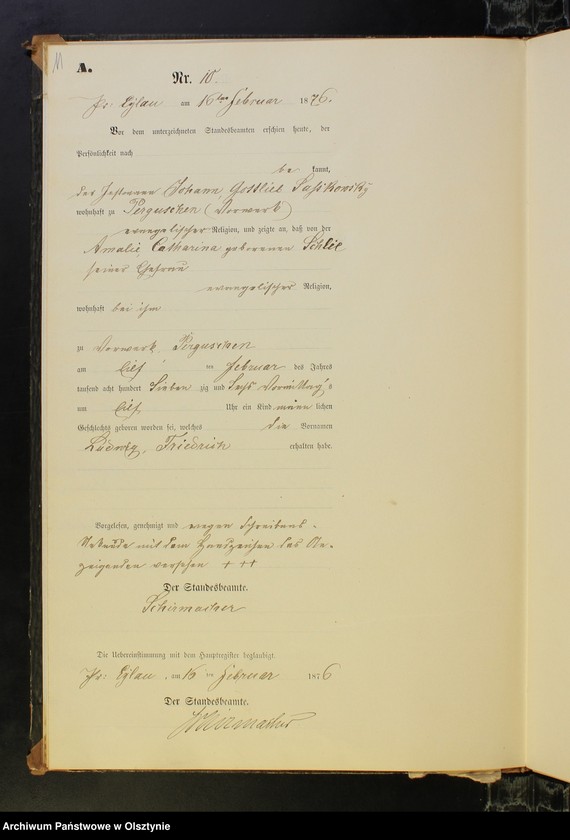 11
A.
Nr. 10.
Pr: Eylau am 16ten Februar 1876.
Vor dem unterzeichneten Standesbeamten erschien heute, der
Persönlichkeit nach
be kannt,
der Instmann Johann Gottlieb
wohnhaft zu Perguschen (Vorwerk)
evangelischer Religion, und zeigte an, daß von der
Amalie, Catharina geborenen Schlie
seiner Ehefrau
evangelischer Religion,
wohnhaft bei ihm
zu Vorwerk Perguschen
am Elf ten Februar des Jahres
tausend acht hundert Sieben zig und Sechs Vormittag's
um Elf Uhr ein Kind männ lichen
Geschlechts geboren worden sei, welches die Vornamen
Ludwig, Friedrich erhalten habe.
Vorgelesen, genehmigt und wegen Schreibens-
Unkunde mit dem Handzeichen des An-
zeigenden versehen + ++
Der Standesbeamte.
Schirmacher
Die Uebereinstimmung mit dem Hauptregister beglaubigt.
Pr: Eylau, am 16 ten Februar 1876
Der Standesbeamte.
Schirmacher
Archiwum Państwowe w Olsztynie